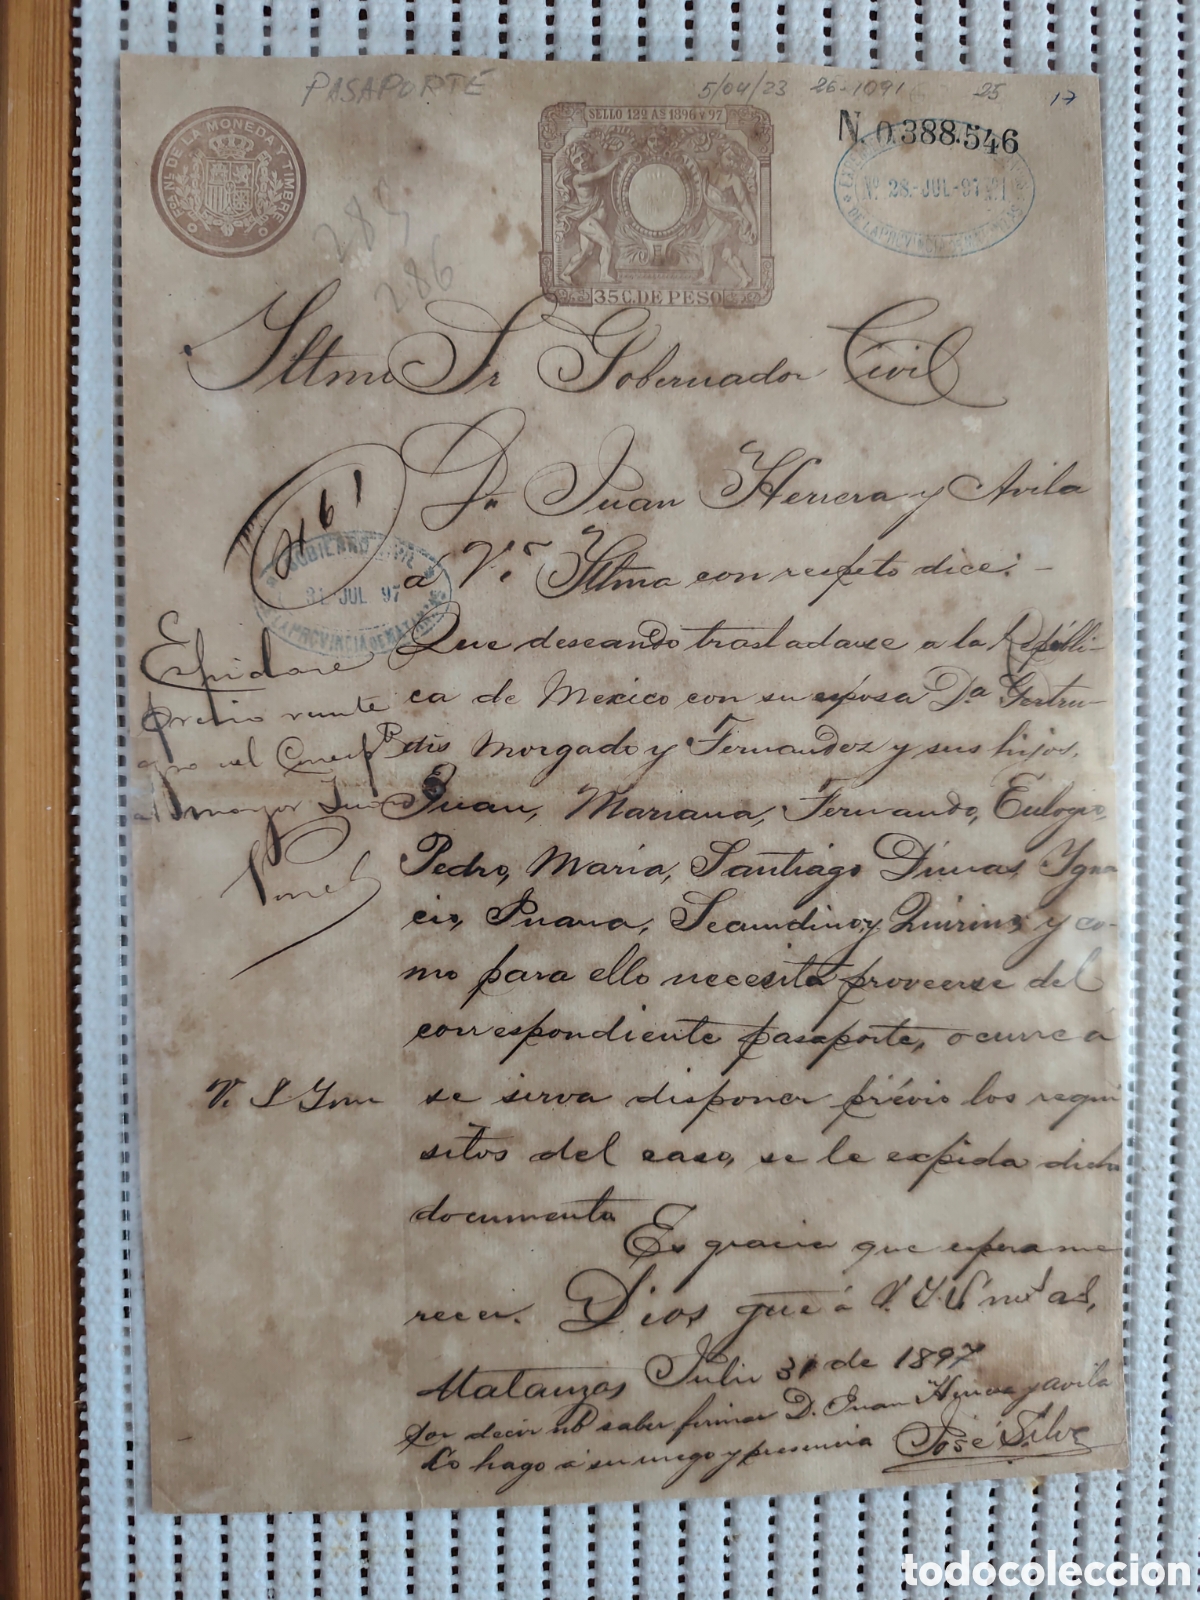 PASAPORTE
5/04/23 26-1091 25 17
FCA. NL. DE LA MONEDA Y TIMBRE
SELLO 12º AS 1896 Y 97
35 C. DE PESO
N. 0.388.546
28-JUL-97
DE LA PROVINCIA DE MATANZAS
285
286
Iltmo Sr Gobernador Civil
Dn Juan Herrera y Avila
a V. Iltma con respeto dice: -
1161
GOBIERNO CIVIL
31 JUL 97
LA PROVINCIA DE MATANZAS
Que deseando trasladarse a la Repúbli-
ca de Mexico con su esposa Da Gertru-
dis Morgado y Fernandez y sus hijos,
Juan, Mariana, Fernando, Eulogio,
Pedro, María, Santiágo Dimas, Igna
cio, Juana, Secundino y Quirino, y co-
mo para ello necesita proveerse del
correspondiente pasaporte, ocurre á
V. S. Iltma se sirva disponer prévio los requi
sitos del caso, se le expida dicho
documento
Es gracia que espera me
recer. Dios gue á V. S. I. ms as,
Matanzas Julio 31 de 1897
Por decir no saber firmar D. Juan Herrera y Avila
Lo hago á su ruego y presencia José Silva
Expidase
previo
al mayor Juan
todocoleccion